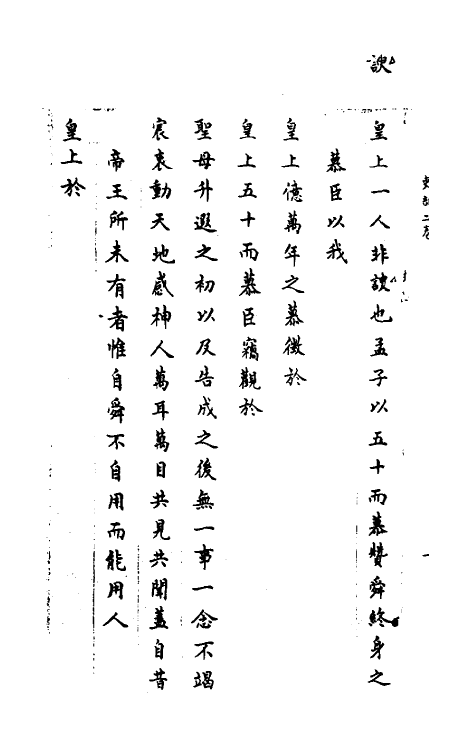 諛
皇上一人非諛也孟子以五十而慕贊舜終身之
慕臣以我
皇上億萬年之慕徵於
皇上五十而慕臣竊觀於
聖母升遐之初以及告成之後無一事一念不竭
宸衷動天地感神人萬耳萬目共見共聞蓋自昔
帝王所未有者惟自舜不自用而能用人
皇上於